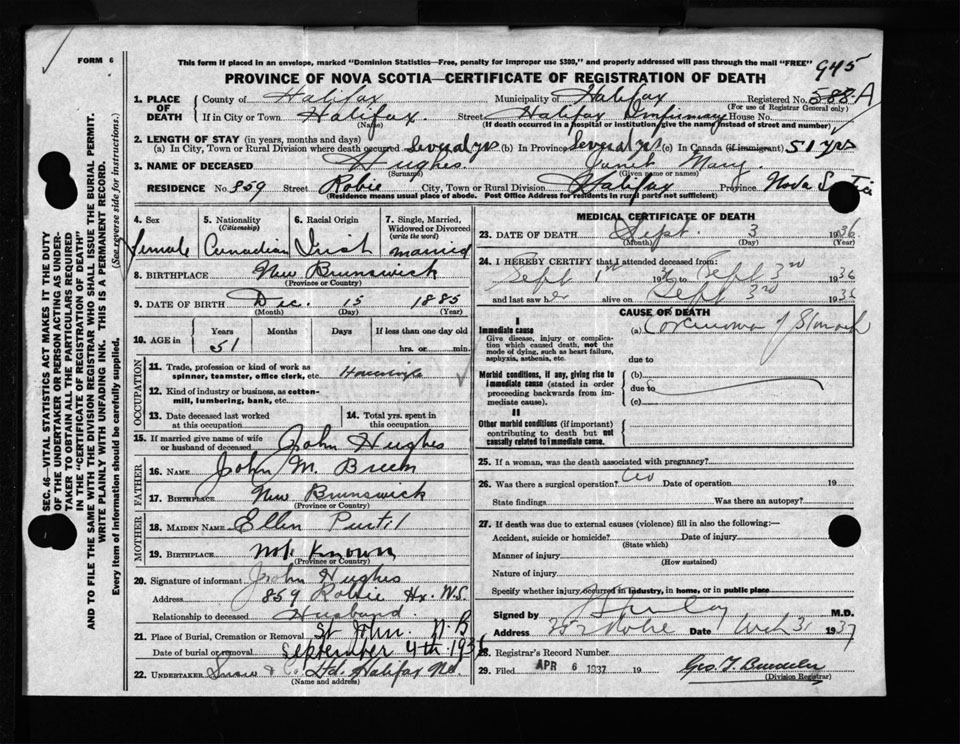 FORM 6
This form if placed in an envelope, marked "Dominion Statistics—Free, penalty for improper use $300," and properly addressed will pass through the mail "FREE"
945
PROVINCE OF NOVA SCOTIA—CERTIFICATE OF REGISTRATION OF DEATH
1. PLACE OF DEATH County of Halifax Municipality of Halifax Registered No. 588-A
(For use of Registrar General only)
If in City or Town Halifax. Street Halifax Infirmary House No.
(Name) (If death occurred in a hospital or institution, give the name instead of street and number)
2. LENGTH OF STAY (in years, months and days)
(a) In City, Town or Rural Division where death occurred Several yrs (b) In Province Several yrs (c) In Canada (if immigrant) 51 yrs
3. NAME OF DECEASED Hughes. Janet Mary.
(Surname) (Given name or names)
RESIDENCE No. 859 Street Robie City, Town or Rural Division Halifax Province Nova Scotia
(Residence means usual place of abode. Post Office Address for residents in rural parts not sufficient)
4. Sex female
5. Nationality (Citizenship) Canadian
6. Racial Origin Irish
7. Single, Married, Widowed or Divorced (write the word) married
8. BIRTHPLACE New Brunswick
(Province or Country)
9. DATE OF BIRTH Dec. 15 1885
(Month) (Day) (Year)
10. AGE in Years Months Days If less than one day old
51 hrs. or min.
OCCUPATION
11. Trade, profession or kind of work as spinner, teamster, office clerk, etc. Housewife
12. Kind of industry or business, as cotton-mill, lumbering, bank, etc.
13. Date deceased last worked at this occupation
14. Total yrs. spent in this occupation
15. If married give name of wife or husband of deceased John Hughes
FATHER
16. NAME John M. Breen
17. BIRTHPLACE New Brunswick
(Province or Country)
MOTHER
18. MAIDEN NAME Ellen
19. BIRTHPLACE not known
(Province or Country)
20. Signature of informant John Hughes
Address 859 Robie Hx. N.S.
Relationship to deceased Husband.
21. Place of Burial, Cremation or Removal St John. N-B
Date of burial or removal September 4th 1936
22. UNDERTAKER Snow & Co. Ltd. Halifax NS.
(Name and address)
MEDICAL CERTIFICATE OF DEATH
23. DATE OF DEATH Sept. 3 1936
(Month) (Day) (Year)
24. I HEREBY CERTIFY that I attended deceased from:
Sept 1st 1936 to Sept 3rd 1936
and last saw her alive on Sept 3rd 1936
CAUSE OF DEATH
I
Immediate cause
Give disease, injury or complication which caused death, not the mode of dying, such as heart failure, asphyxia, asthenia, etc.
(a) Carcinoma of Stomach
due to
Morbid conditions, if any, giving rise to immediate cause (stated in order proceeding backwards from immediate cause).
(b)
due to
(c)
II
Other morbid conditions (if important) contributing to death but not causally related to immediate cause.
25. If a woman, was the death associated with pregnancy?
26. Was there a surgical operation? no Date of operation 19
State findings Was there an autopsy?
27. If death was due to external causes (violence) fill in also the following:—
Accident, suicide or homicide? Date of injury 19
(State which)
Manner of injury
(How sustained)
Nature of injury
Specify whether injury occurred in industry, in home, or in public place
Signed by M.D.
Address Robie Date Mch 31 1937
28. Registrar's Record Number
29. Filed APR 6 1937 19
(Division Registrar)
SEC. 46—VITAL STATISTICS ACT MAKES IT THE DUTY OF THE UNDERTAKER OR PERSON ACTING AS UNDERTAKER TO OBTAIN ALL THE PARTICULARS REQUIRED IN THE "CERTIFICATE OF REGISTRATION OF DEATH" AND TO FILE THE SAME WITH THE DIVISION REGISTRAR WHO SHALL ISSUE THE BURIAL PERMIT.
WRITE PLAINLY WITH UNFADING INK. THIS IS A PERMANENT RECORD.
Every item of information should be carefully supplied. (See reverse side for instructions.)